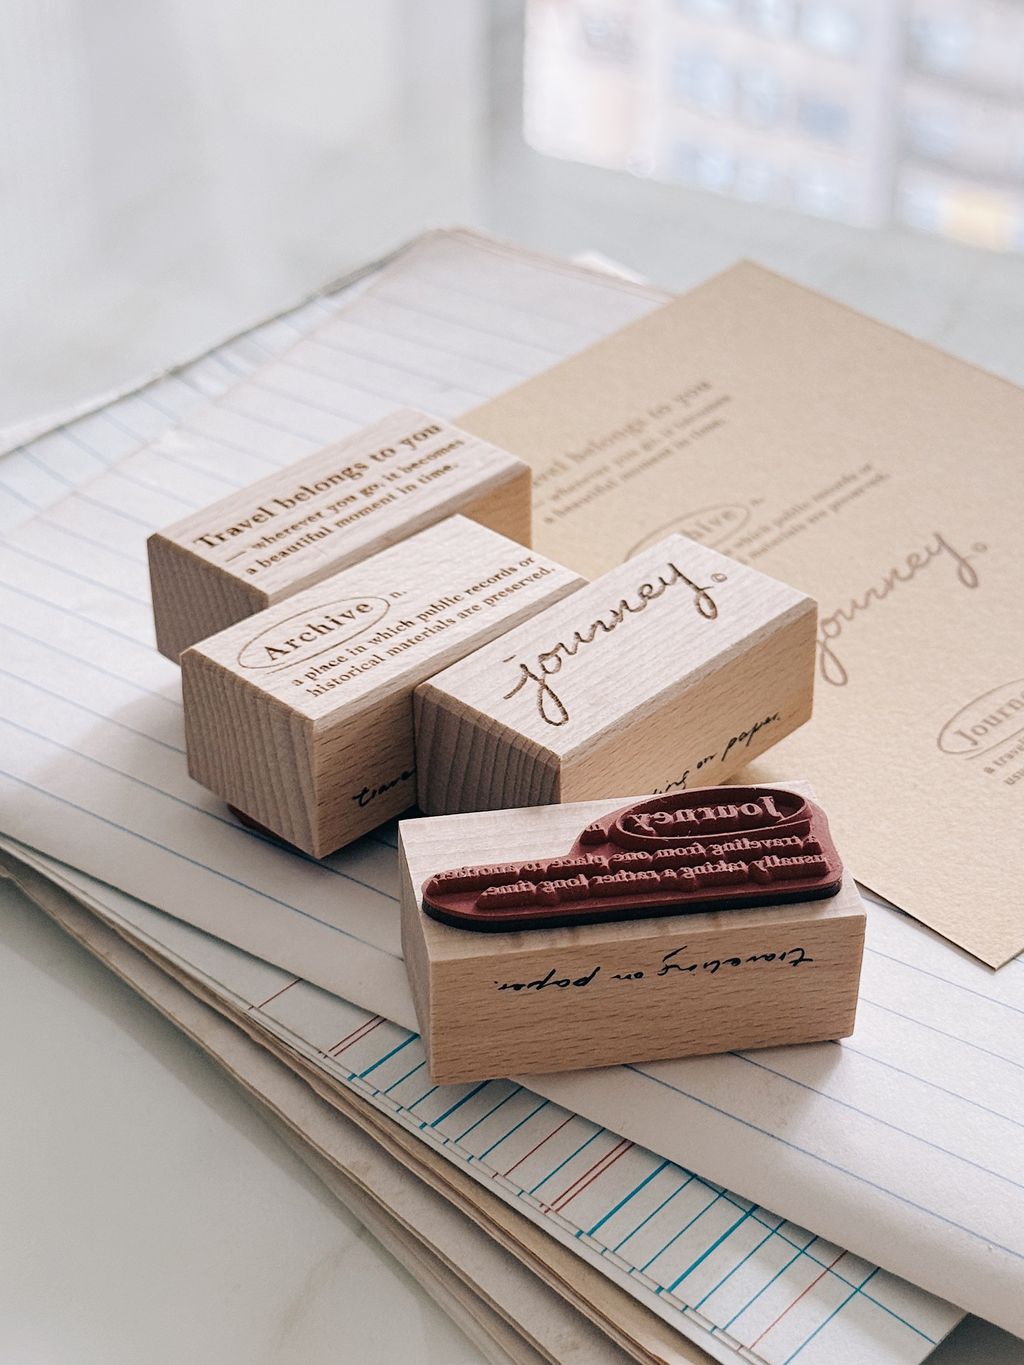 Travel belongs to you
— wherever you go, it becomes
a beautiful moment in time.
Archive n.
a place in which public records or
historical materials are preserved.
journey ©
trave
king on paper.
Journey n.
a traveling from one place to another,
usually taking a rather long time.
traveling on paper.
avel belongs to you
wherever you go, it becomes
a beautiful moment in time.
chive n.
which public records or
materials are preserved.
journey ©
Journe
a trav
usu